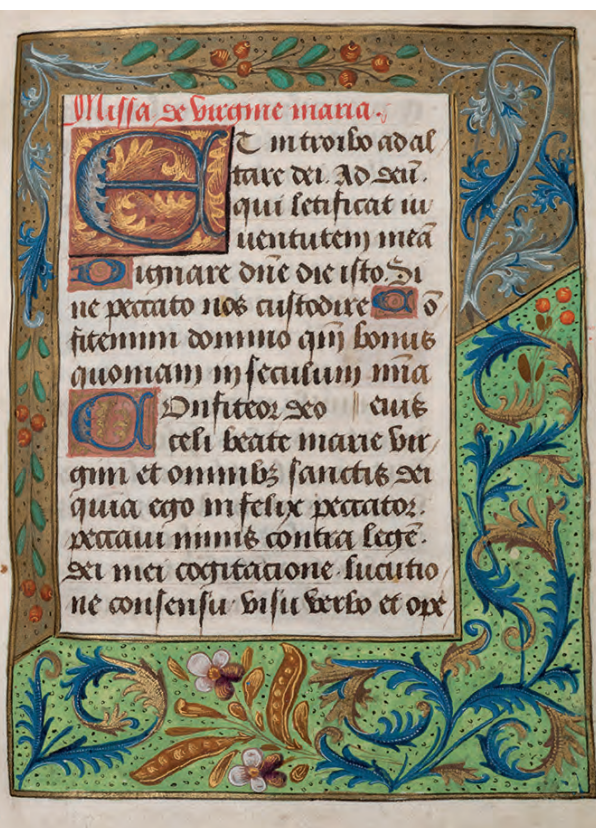 Missa de virgine maria.
ET introibo ad al
tare dei. Ad deū.
qui letificat iu
uentutem meā
Dignare dn̄e die isto. Si
ne peccato nos custodire Cō
fitemini domino qm̄ bonus
quoniam in seculum mīa
Confiteor deo eius
celi beate marie vir
gini et omnibꝫ sanctis dei
quia ego infelix peccator.
peccaui nimis contra legē.
dei mei cogitacione lucutio
ne consensu visu verbo et ope